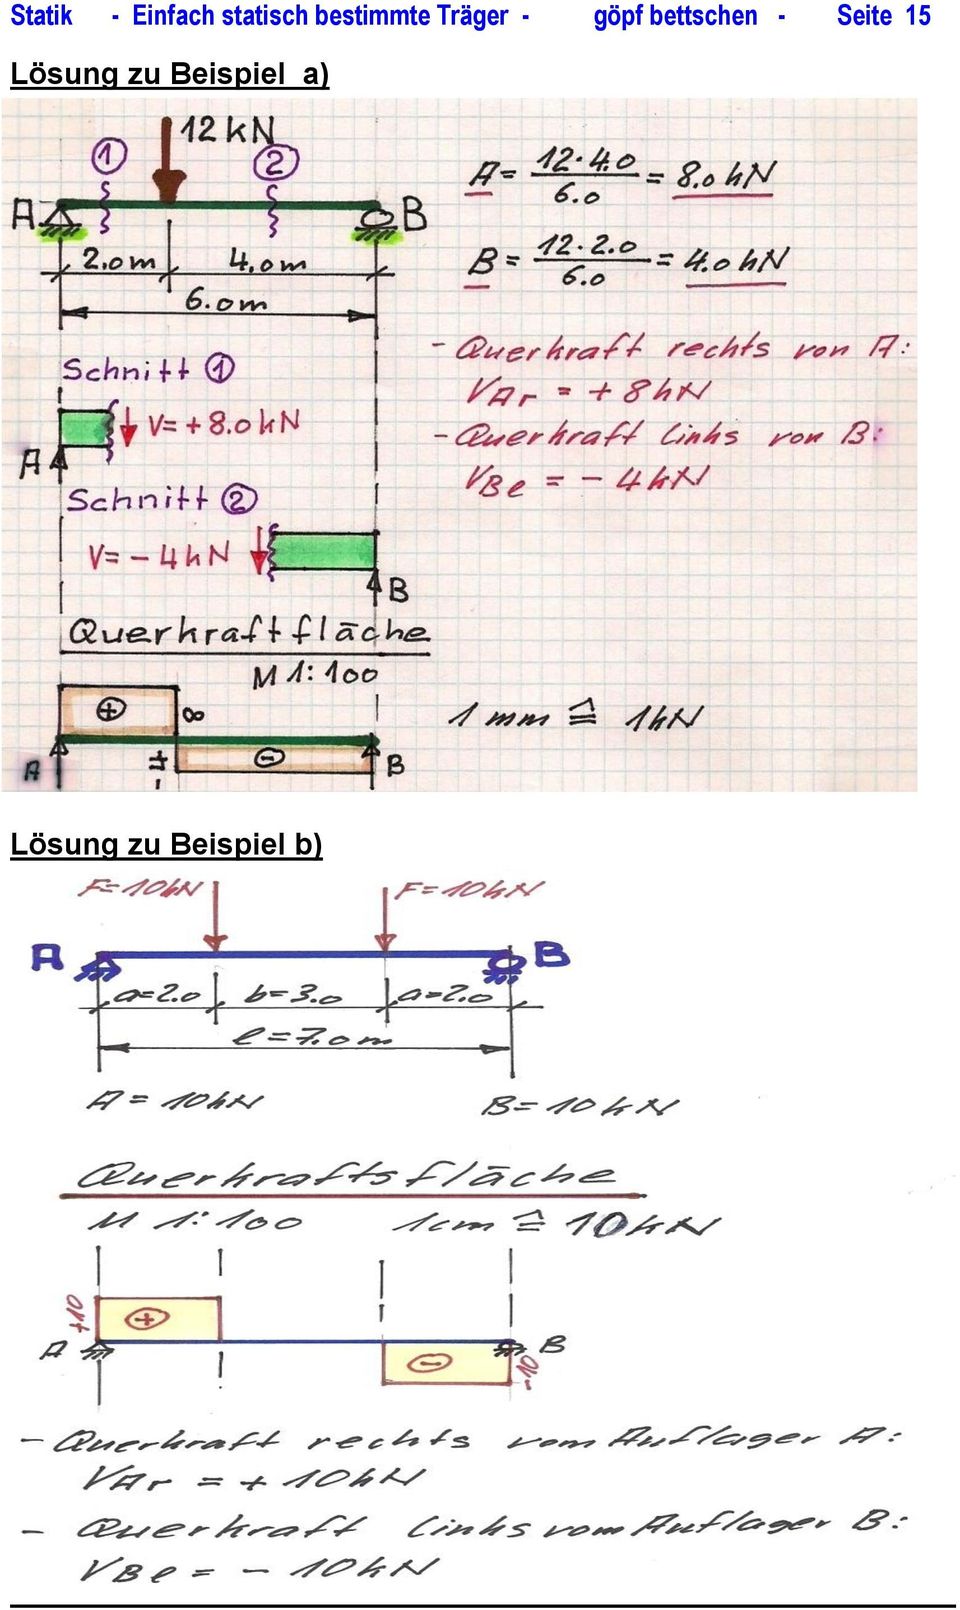 Statik - Einfach statisch bestimmte Träger - göpf bettschen - Seite 15
Lösung zu Beispiel a)
12 kN
1 2
A B
2.0m 4.0m
6.0m
A = 12·4.0 / 6.0 = 8.0 kN
B = 12·2.0 / 6.0 = 4.0 kN
Schnitt 1
V = +8.0 kN
A
Schnitt 2
V = -4 kN
B
- Querkraft rechts von A:
VAr = + 8 kN
- Querkraft links von B:
VBl = - 4 kN
Querkraftfläche
M 1:100
1 mm ≙ 1 kN
+ 8
A -4 - B
Lösung zu Beispiel b)
F=10kN F=10kN
A B
a=2.0 b=3.0 a=2.0
l=7.0m
A = 10kN B = 10kN
Querkraftsfläche
M 1:100 1cm ≙ 10kN
+10 +
A - B
-10
- Querkraft rechts vom Auflager A:
VAr = + 10kN
- Querkraft links vom Auflager B:
VBl = - 10kN